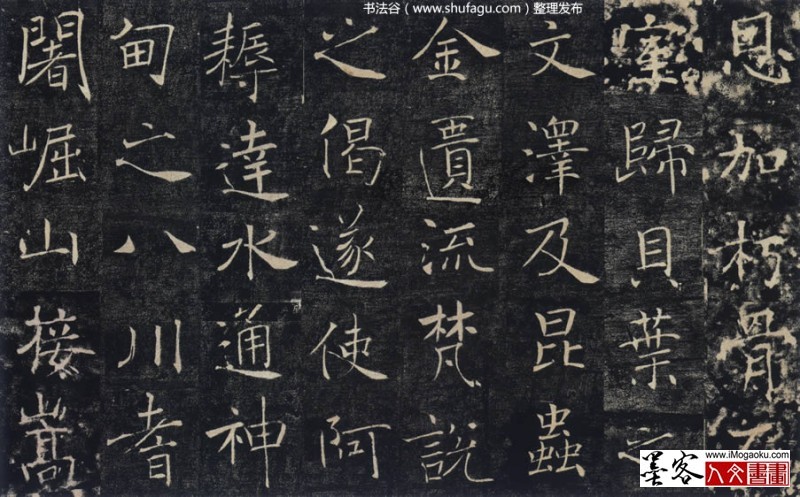 书法谷（www.shufagu.com）整理发布
恩加朽骨
歸貝葉之
文澤及昆蟲
金匱流梵說
之偈遂使阿
耨達水通神
甸之八川耆
闍崛山接嵩
墨客
www.iMogaoku.com
人文書畫